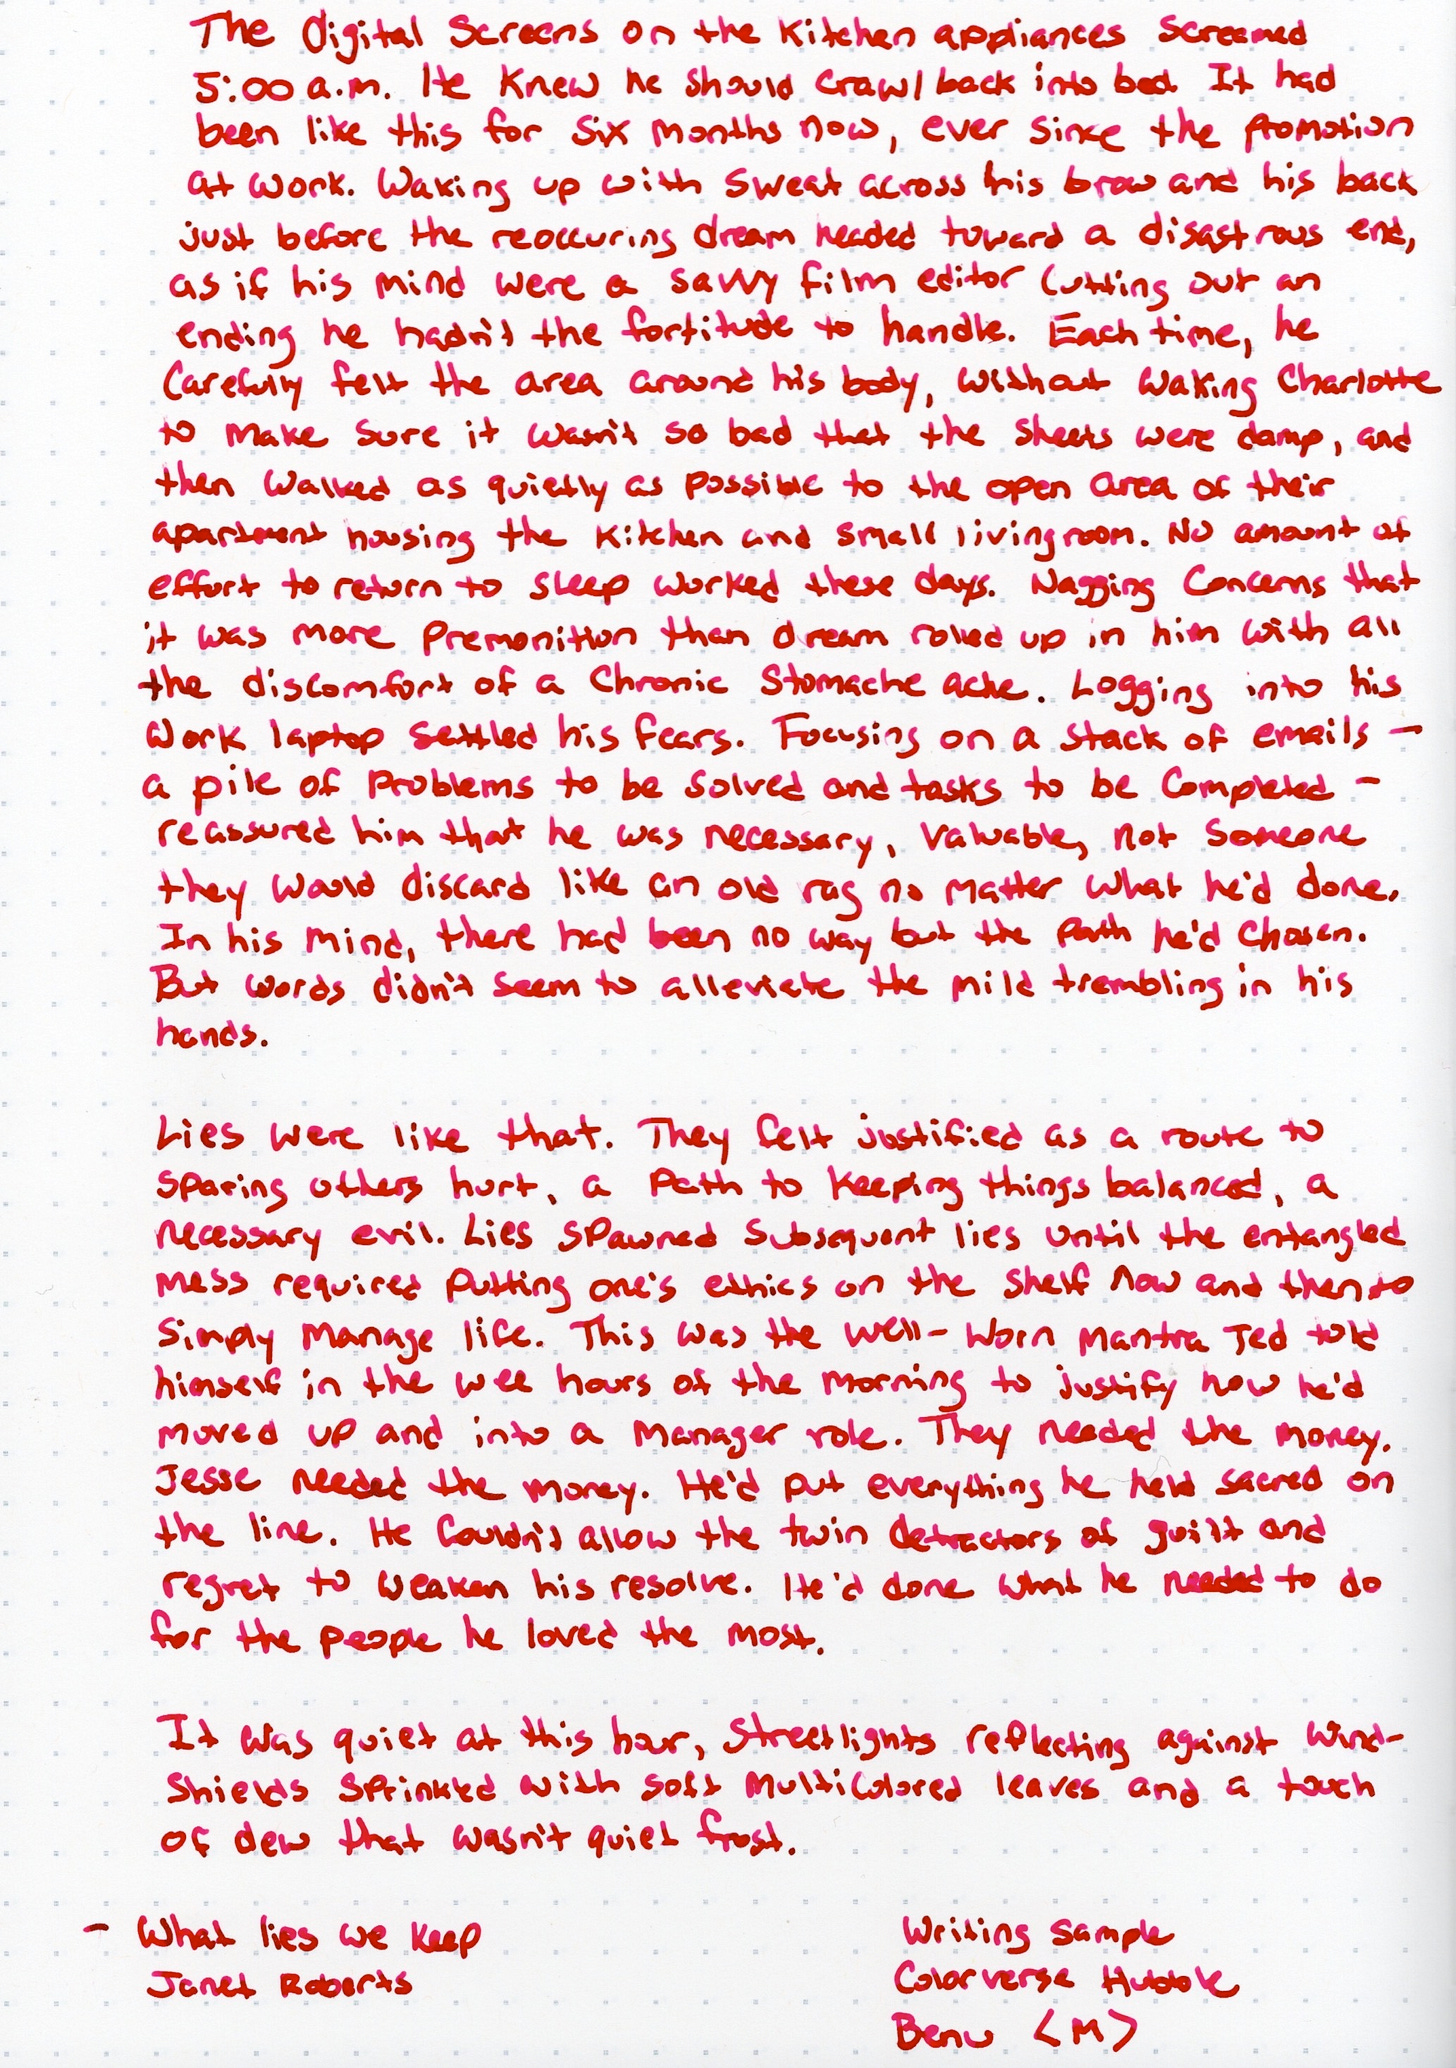 The Digital Screens on the Kitchen appliances Screamed
5:00 a.m. He Knew he should crawl back into bed. It had
been like this for six months now, ever since the promotion
at work. Waking up with sweat across his brow and his back
just before the reoccuring dream headed toward a disastrous end,
as if his mind were a savvy film editor cutting out an
ending he hadn't the fortitude to handle. Each time, he
Carefully felt the area around his body, without waking Charlotte
to make sure it wasn't so bad that the sheets were damp, and
then walked as quietly as possible to the open area of their
apartment housing the kitchen and small livingroom. No amount of
effort to return to sleep worked these days. Nagging concerns that
it was more premonition than dream roiled up in him with all
the discomfort of a Chronic Stomache ache. Logging into his
work laptop settled his fears. Focusing on a stack of emails –
a pile of problems to be solved and tasks to be completed –
reassured him that he was necessary, valuable, not someone
they would discard like an old rag no matter what he'd done.
In his mind, there had been no way but the path he'd chosen.
But words didn't seem to alleviate the mild trembling in his
hands.

Lies were like that. They felt justified as a route to
sparing others hurt, a path to keeping things balanced, a
necessary evil. Lies spawned subsequent lies until the entangled
mess required putting one's ethics on the shelf now and then to
simply manage life. This was the well-worn mantra Ted told
himself in the wee hours of the morning to justify how he'd
moved up and into a manager role. They needed the money.
Jesse needed the money. He'd put everything he held sacred on
the line. He couldn't allow the twin detractors of guilt and
regret to weaken his resolve. He'd done what he needed to do
for the people he loved the most.

It was quiet at this hour, streetlights reflecting against wind-
shields sprinkled with soft multicolored leaves and a touch
of dew that wasn't quiet frost.

– What lies we keep
Janet Roberts
Writing Sample
Colorverse Hubble
Benu <M>